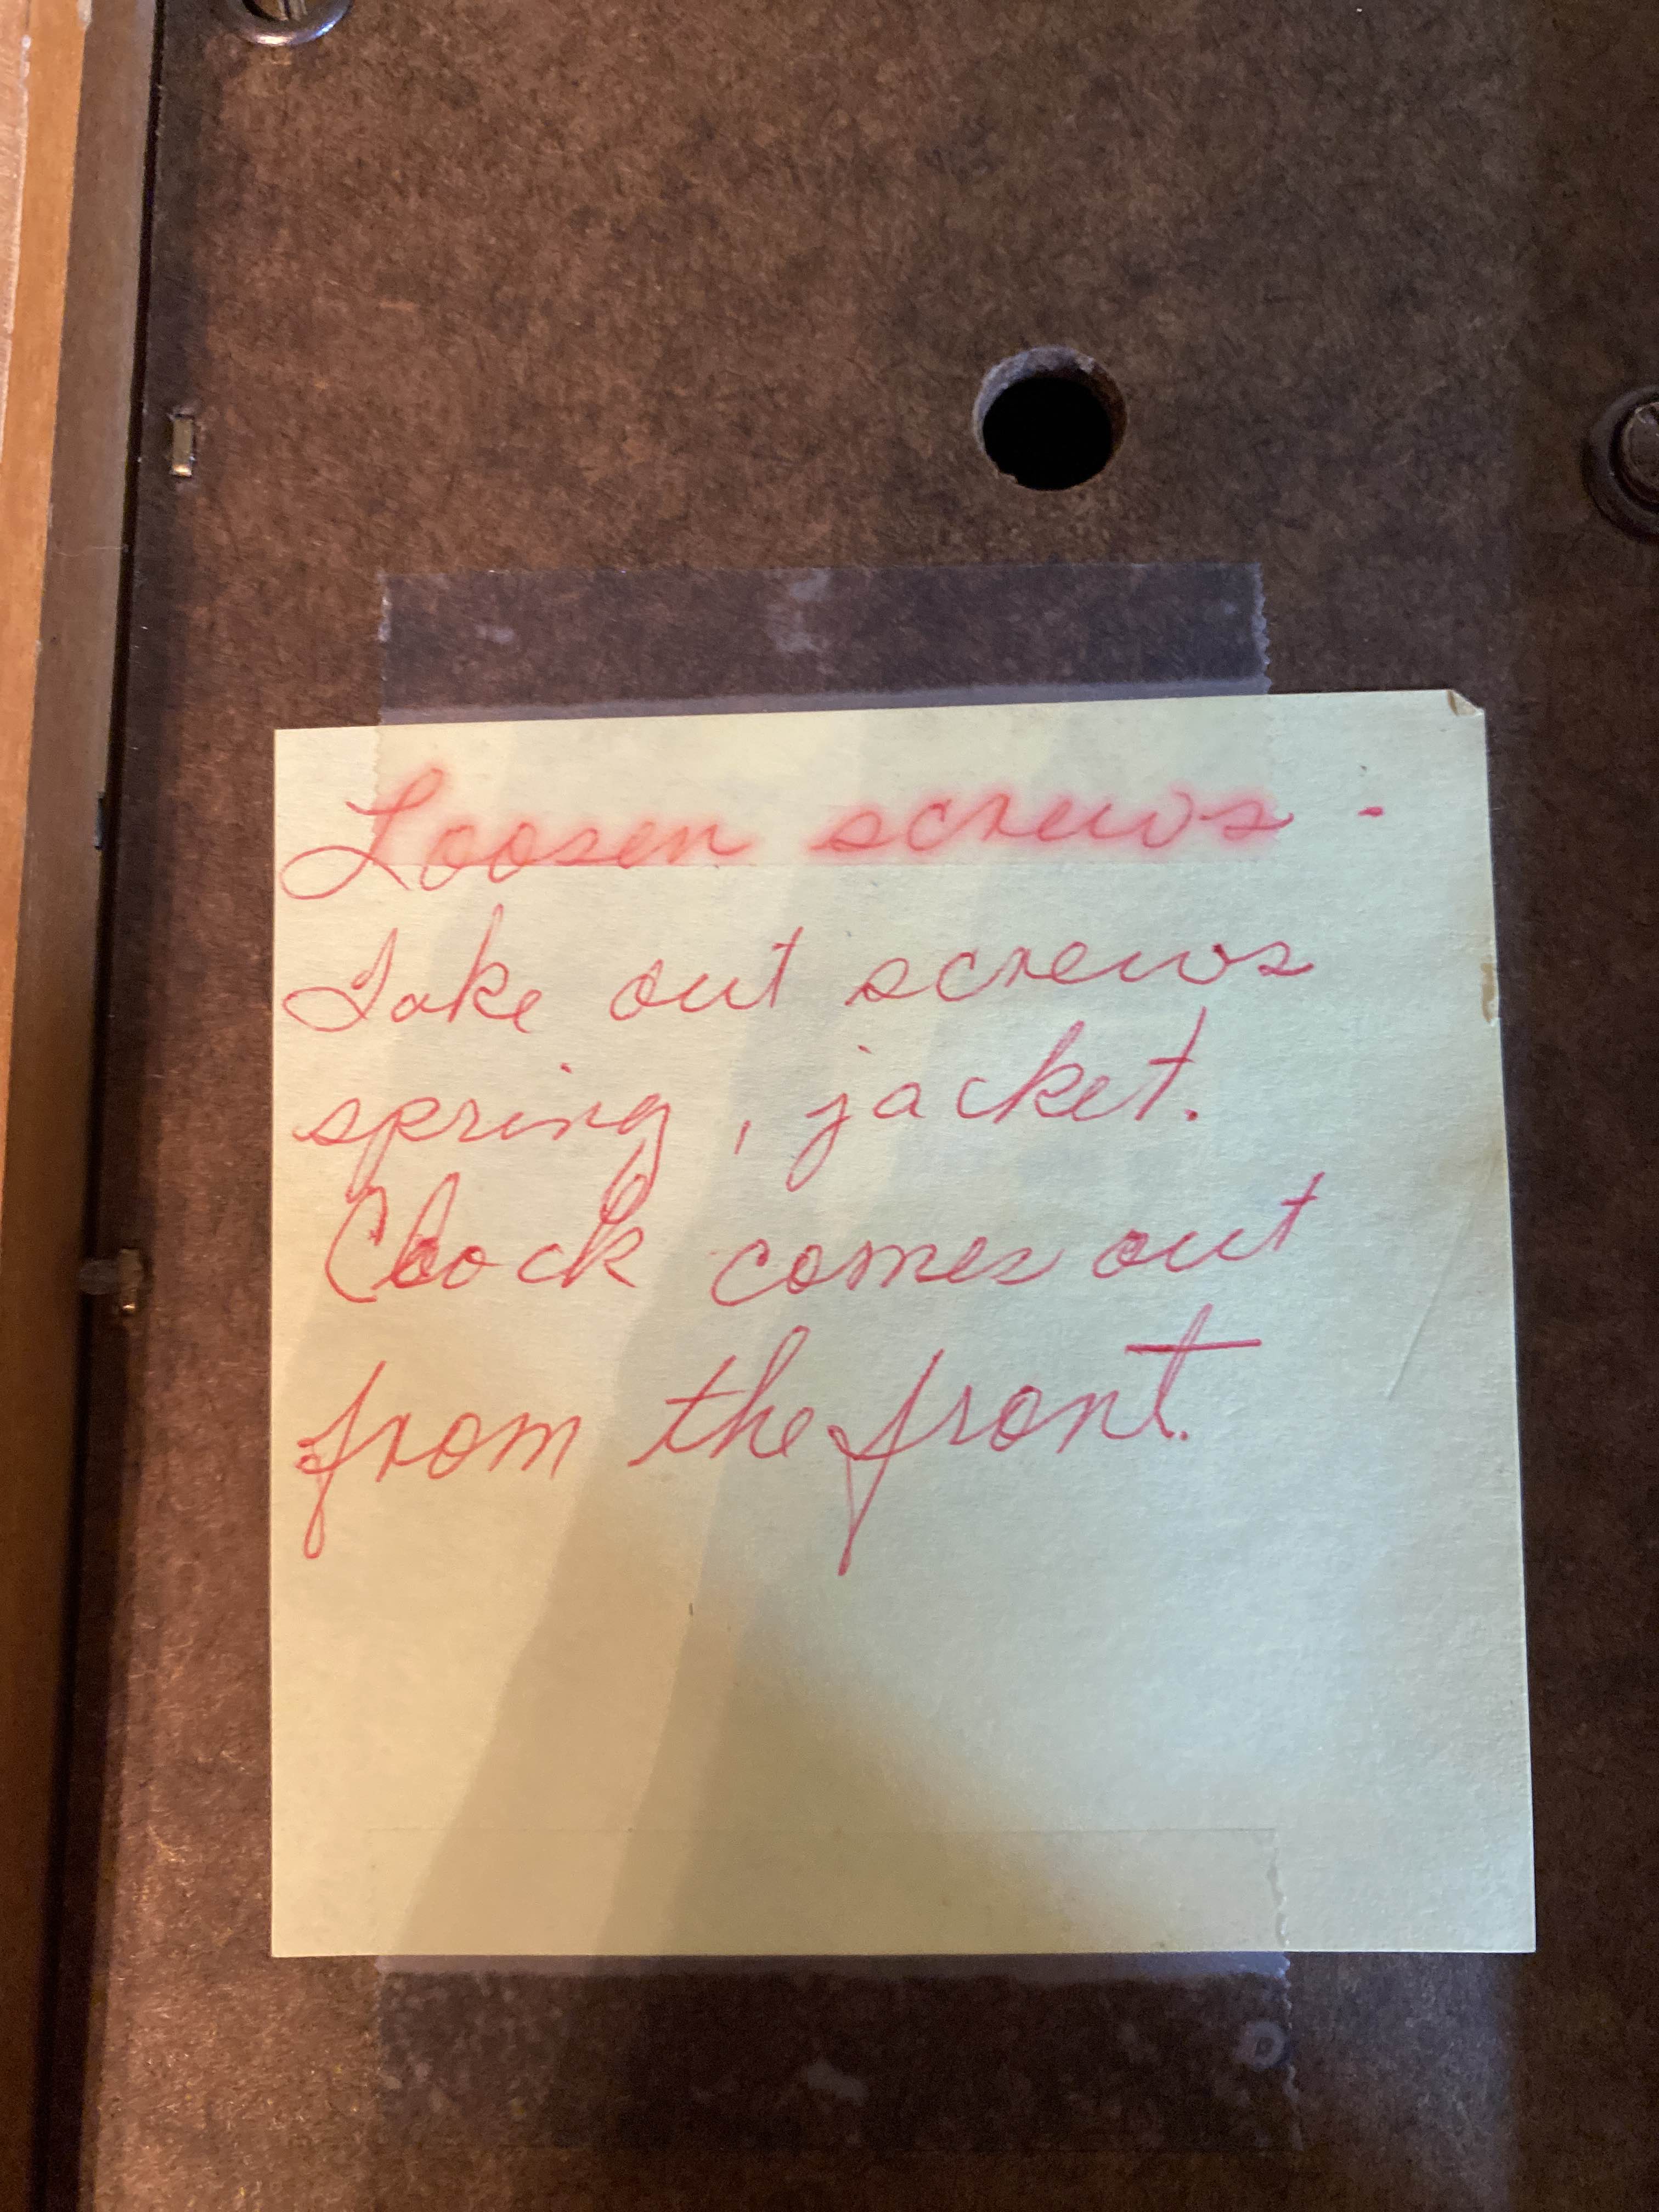 Loosen screws -
Take out screws
spring, jacket.
Clock comes out
from the front.